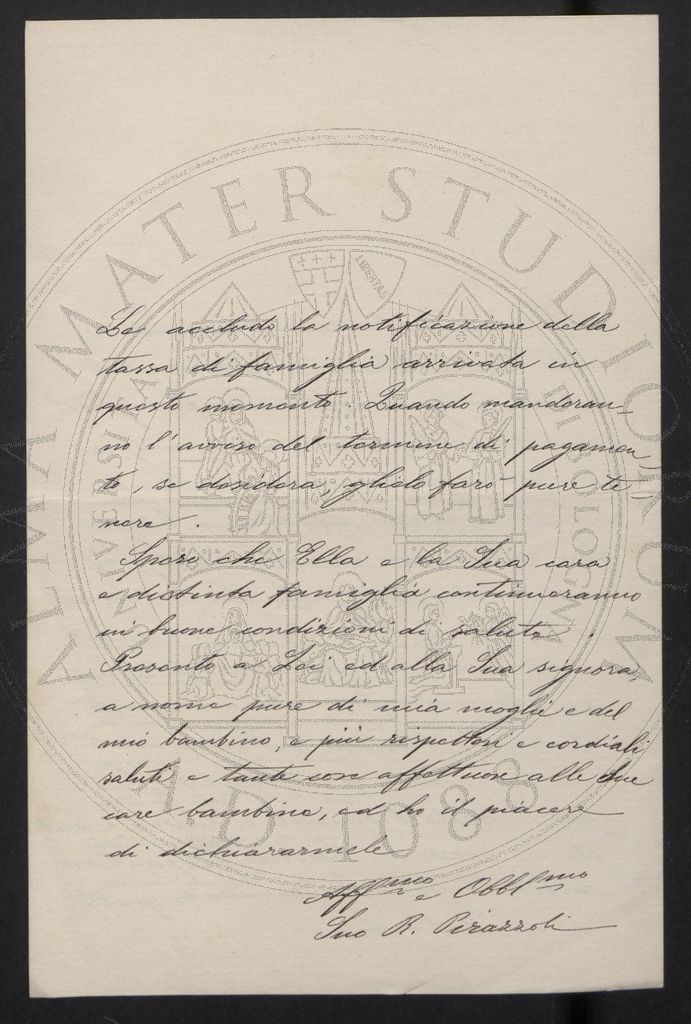 Le accludo la notificazione della
tassa di famiglia arrivata in
questo momento. Quando mandaran-
no l'avviso del termine di pagamen-
to, se desidera, glielo farò pure te-
nere.
Spero che Ella e la Sua cara
e distinta famiglia continueranno
in buone condizioni di salute.
Presento a Lei ed alla Sua signora,
a nome pure di mia moglie e del
mio bambino, i più rispettosi e cordiali
saluti e tante cose affettuose alle due
care bambine, ed ho il piacere
di dichiararmele
Aff.mo e Obbl.mo
Suo R. Pirazzoli
ALMA MATER STUDIORUM
A.D. 1088
LIBERTAS